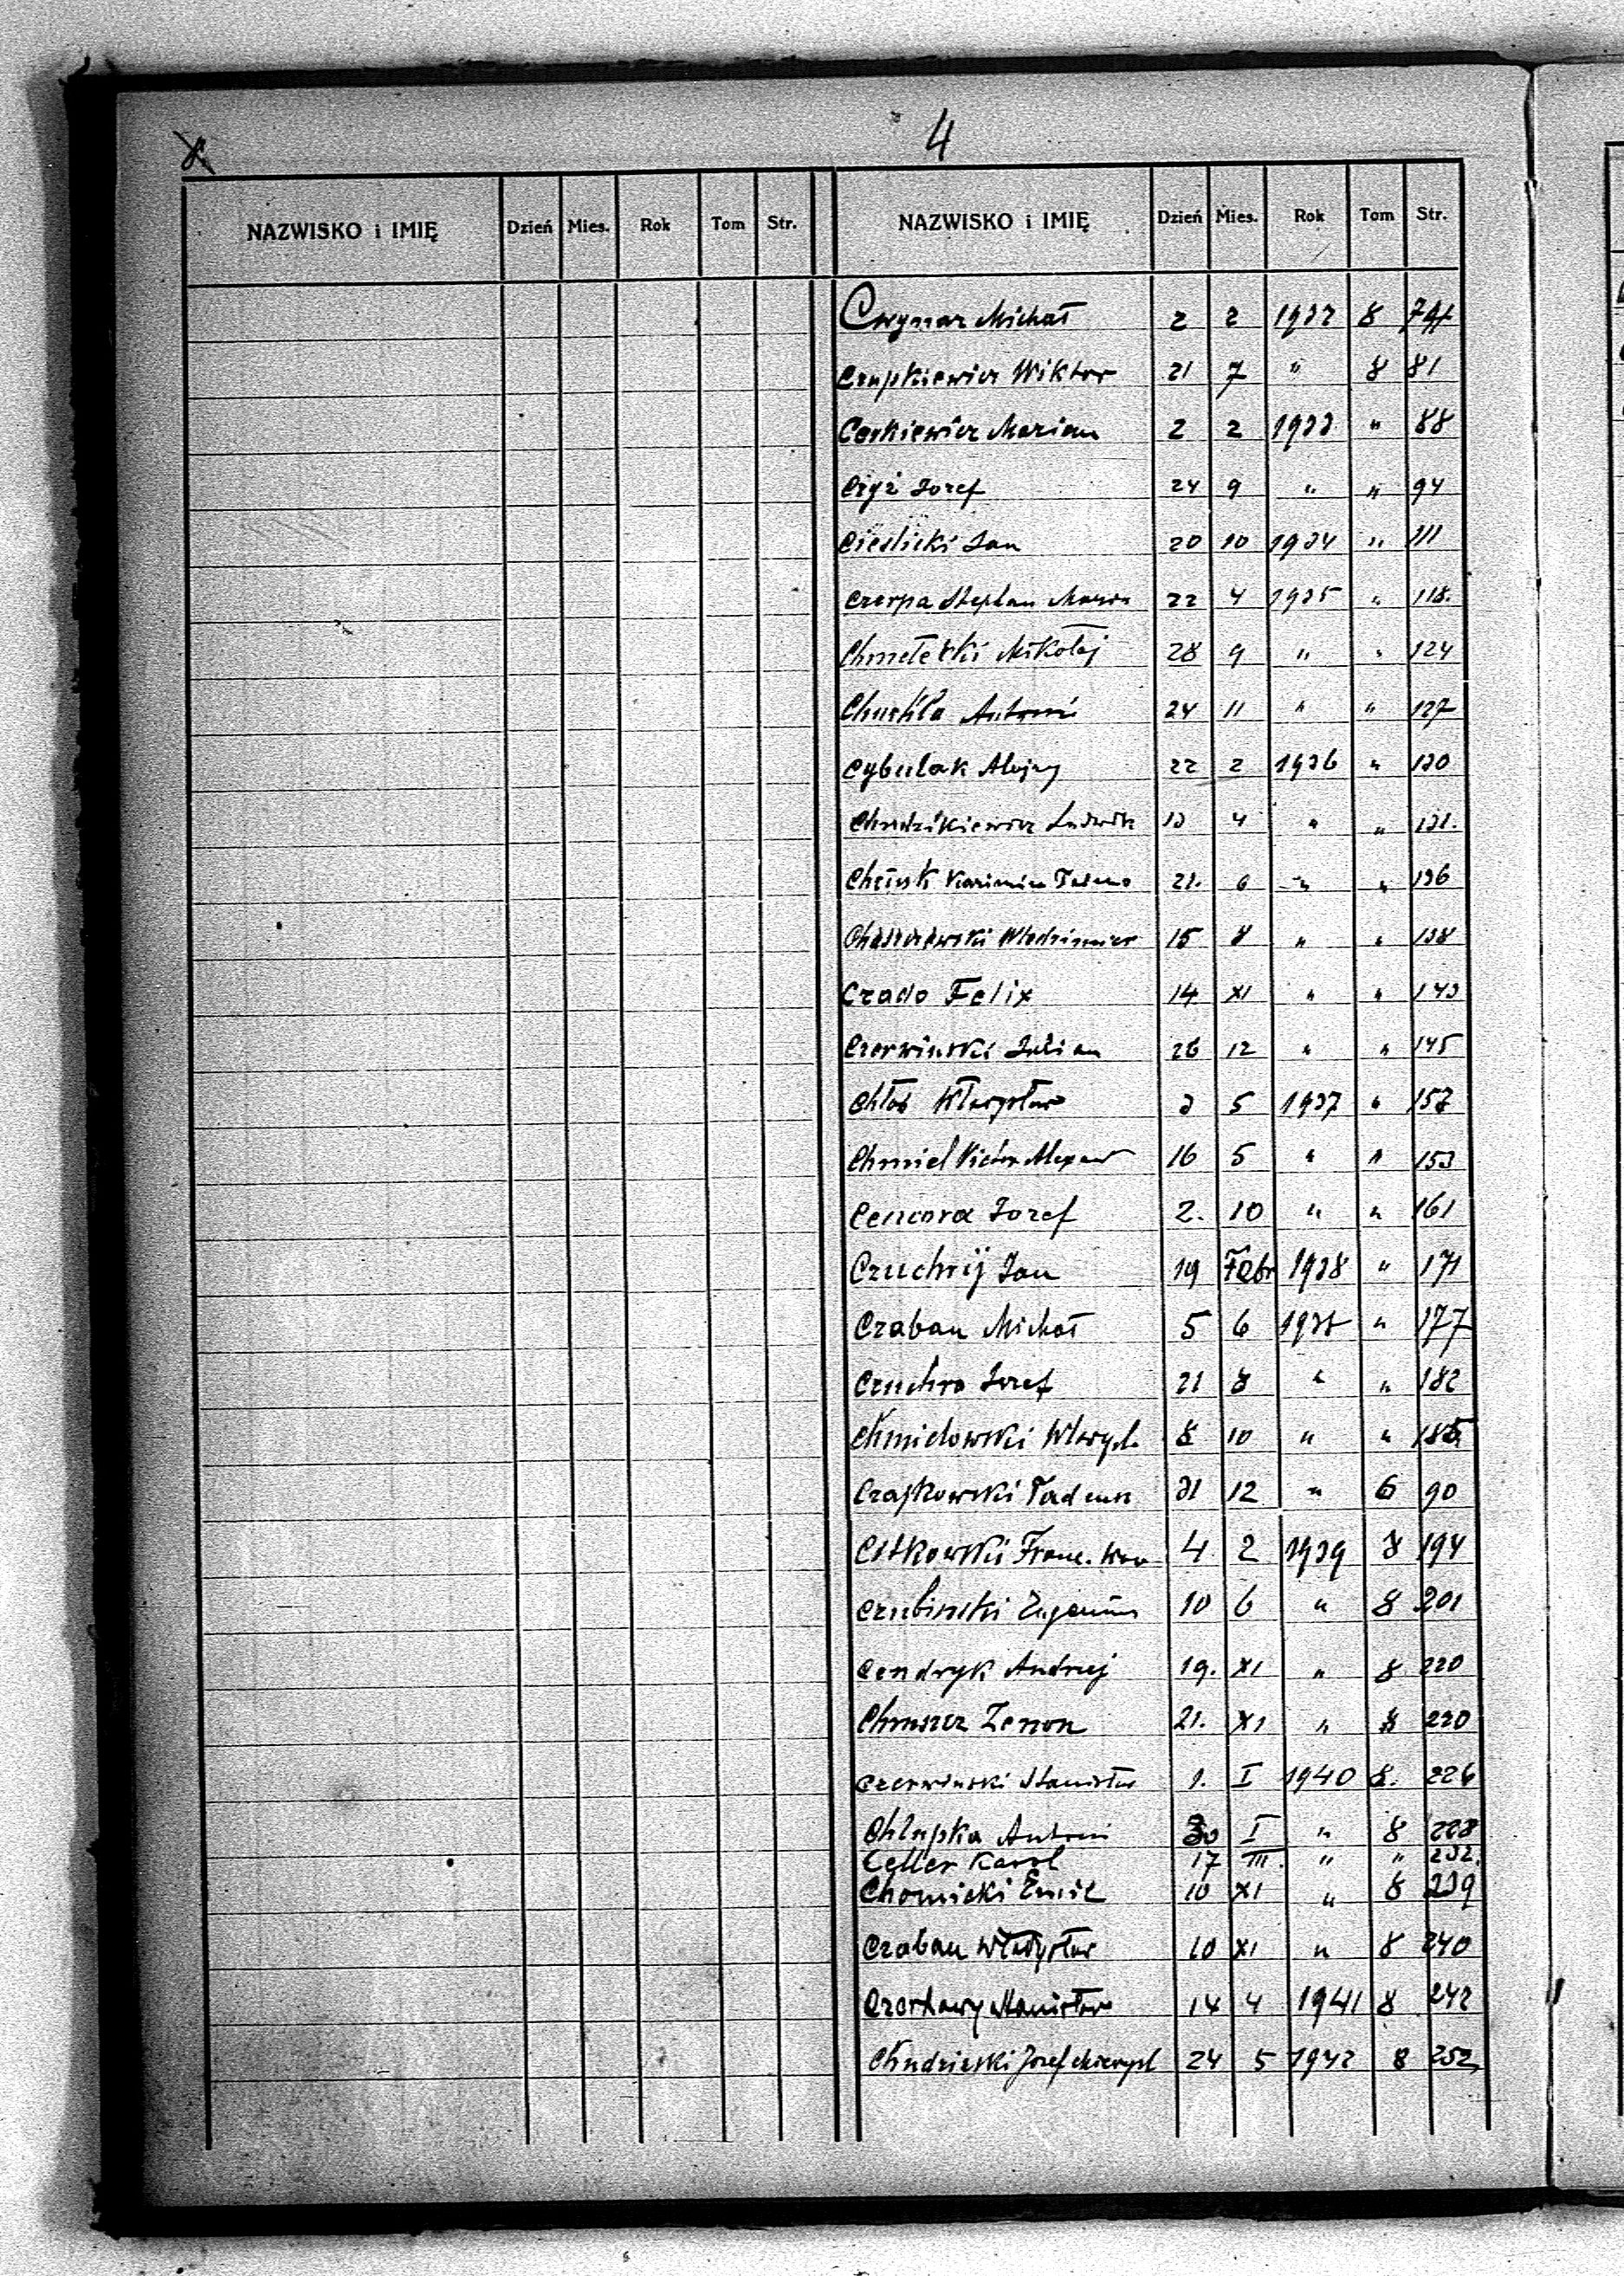 4
NAZWISKO i IMIĘ Dzień Mies. Rok Tom Str. NAZWISKO i IMIĘ Dzień Mies. Rok Tom Str.
Cwynar Michał 2 2 1932 8
Czupkiewicz Wiktor 21 7 " 8 81
Cerkiewicz Marian 2 2 1933 " 88
Czyż Jozef 24 9 " " 94
Cieślicki Jan 20 10 1934 " 111
Czerpa Stephan 22 4 1935 " 118.
Mikołaj 28 9 " " 124
Antoni 24 11 " " 127
Cybulak Alojzy 22 2 1936 " 130
Ludwik 13 4 " " 131.
Kazimierz 21. 6 " " 136
Włodzimierz 15 8 " " 138
Czado Felix 14 XI " " 143
Czerwinski Julian 26 12 " " 145
Chłob Władysław 3 5 1937 " 157
Chmiel Victor 16 5 " " 153
Cencora Jozef 2. 10 " " 161
Czuchrij Jan 19 Febr 1938 " 171
Czaban Michał 5 6 1938 " 177
Czuchra Jozef 21 8 " " 182
Chmielowski 8 10 " " 185
Czajkowski Tadeusz 31 12 " 6 90
Citkowski Franc. 4 2 1939 8 194
Czubinski Eugeniusz 10 6 " 8 201
Cendryk Andrzej 19. XI " 8 220
Chruszcz Zenon 21. XI " 8 220
Czerwinski Stanisław 1. I 1940 8. 226
Chlupka Antoni 30 I " 8 228
Celler Karol 17 III. " " 232.
Chomicki Emil 10 XI " 8 239
Czaban Władysław 10 XI " 8 240
Stanisław 14 4 1941 8 242
Chudzieski Jozef 24 5 1942 8 252